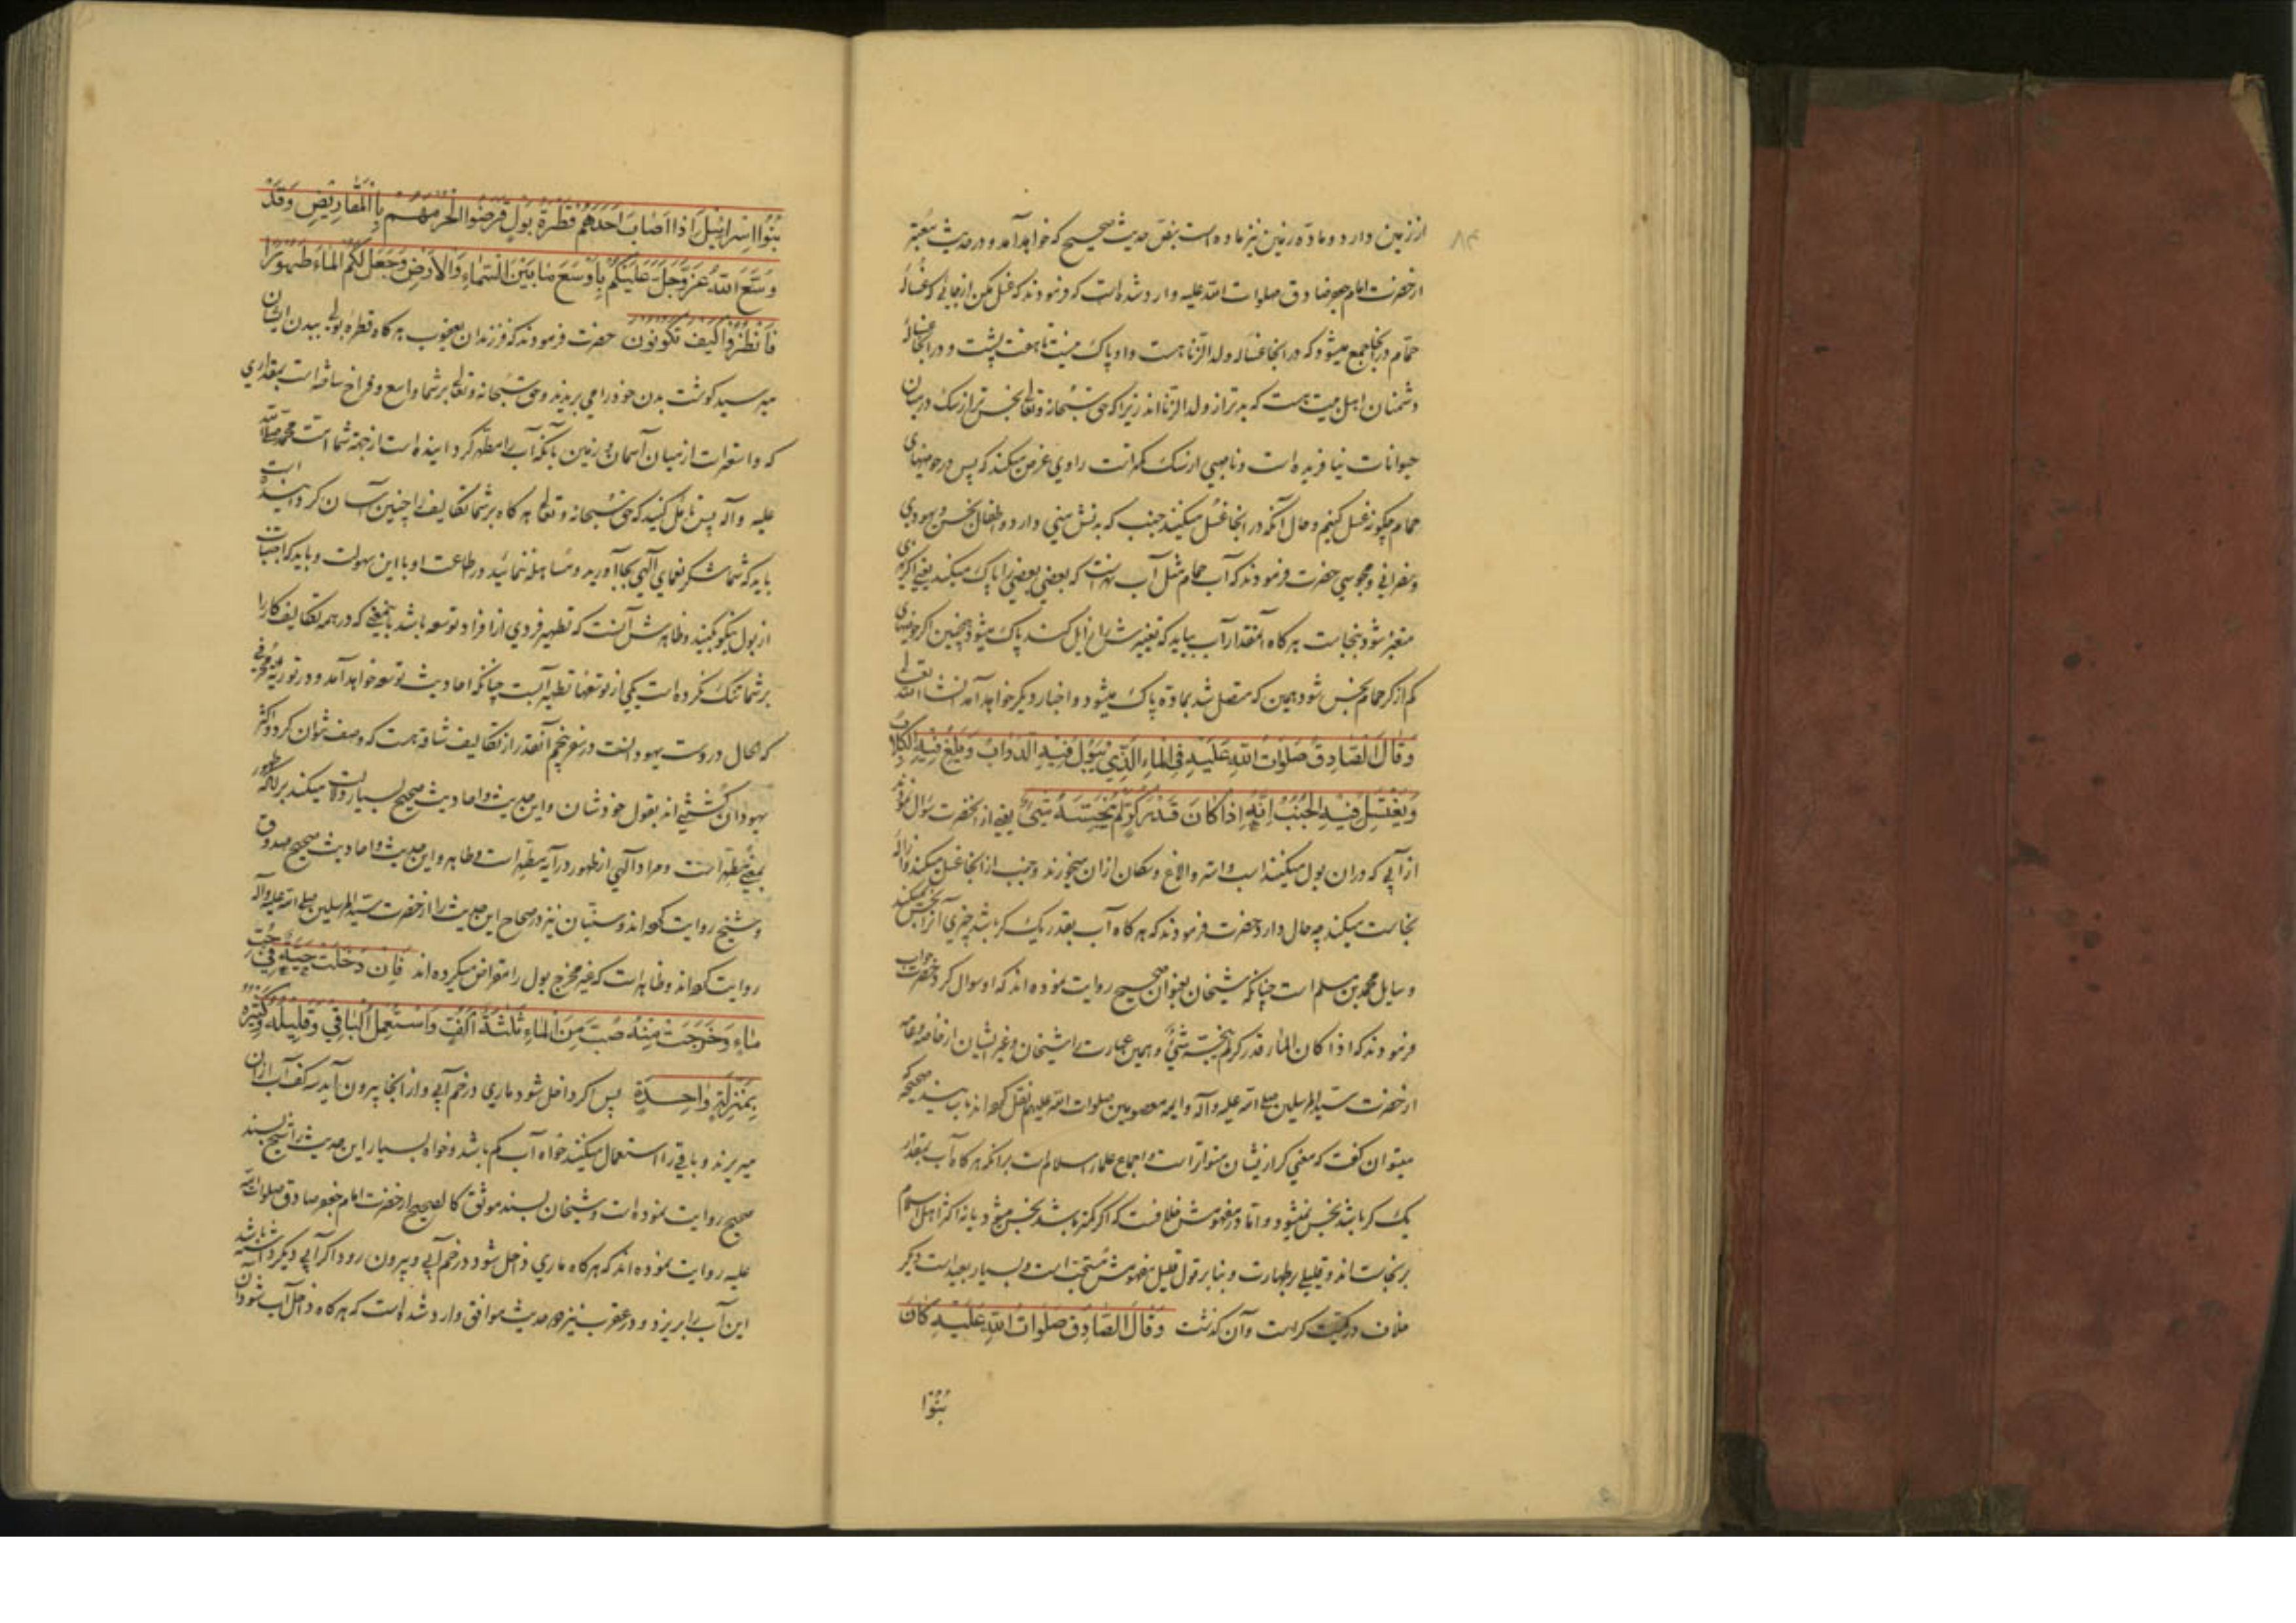 ۸۴
از زمین دارد و ماده زمین نیز ماده است بنص حدیث صحیح که خواهد آمد و در حدیث معتبر
از حضرت امام جعفر صادق صلوات الله علیه وارد شده است که فرمودند که غسل مکن از جائی که غساله
حمام در آنجا جمع میشود که در آنجا غساله ولد الزنا هست و او پاک نیست تا هفت پشت و در آنجا غساله
دشمنان اهل بیت هست که بدتر از ولد الزنااند زیرا که حق سبحانه و تعالی نجس‌تر از سک در میان
حیوانات نیافریده است و ناصبی از سک کمتر است راوی عرض میکند که پس در حوضهای
حمام چکونه غسل کنیم و حال آنکه در آنجا غسل میکنند جنب که بدنش منی دارد و طفلان نجس و یهودی
و نصرانی و مجوسی حضرت فرمودند که آب حمام مثل آب نهر است که بعضی بعضی را پاک میکند یعنی اگر نهری
متغیر شود بنجاست هرکاه آنقدر آب بیاید که تغییرش را زایل کند پاک میشود همچنین اکر حوضهای
کم از کر حمام نجس شود همین که متصل شد بماده پاک میشود و اخبار دیکر خواهد آمد انشاء الله تعالی
وَقَالَ الصَّادِقُ صَلَوَاتُ اللهِ عَلَيْهِ فِي الْمَاءِ الَّذِي تَبُولُ فِيهِ الدَّوَابُّ وَتَلَغُ فِيهِ الْكِلَابُ
وَيَغْتَسِلُ فِيهِ الْجُنُبُ اِنَّهُ اِذَا كَانَ قَدْرَ كُرٍّ لَمْ يُنَجِّسْهُ شَيْءٌ یعنی از آنحضرت سؤال نمودند
از آبی که در آن بول میکنند اسب و استر و الاغ و سکان از آن میخورند و جنب از آنجا غسل میکند و ازاله
نجاست میکند چه حال دارد حضرت فرمودند که هرکاه آب بقدر یک کر باشد چیزی آنرا نجس نمیکند
و سایل محمد بن مسلم است چنانکه شیخان بعنوان صحیح روایت نموده‌اند که او سوال کرد و حضرت جواب
فرمودند که اذا کان الماء قدر کر لم ینجسه شیء و همین عبارت را شیخان و غیر ایشان از خاصه و عامه
از حضرت سید المرسلین صلی الله علیه وآله و ایمه معصومین صلوات الله علیهم نقل کرده‌اند باسانید صحیحه که
میتوان کفت که معنی کر ازیشان متواتر است و اجماع علماء اسلام است برآنکه هرکاه آب بمقدار
یک کر باشد نجس نمیشود و اما در مفهومش خلافست که اکر کمتر باشد نجس میشود یا نه اکثر اهل اسلام
بر نجاست‌اند و قلیلی بر طهارت و بنا بر قول قلیل مفهومش مستحب است و بسیار بعید است و دیگر
خلاف در کمیت کر است و آن کذشت وَقَالَ الصَّادِقُ صَلَوَاتُ اللهِ عَلَيْهِ كَانَ
بَنُوْا
بَنُوْا اِسْرَائِيلَ اِذَا اَصَابَ اَحَدَهُمْ قَطْرَةُ بَوْلٍ قَرَضُوا لُحُومَهُمْ بِالْمَقَارِيضِ وَقَدْ
وَسَّعَ اللهُ عَزَّوَجَلَّ عَلَيْكُمْ بِاَوْسَعِ مَا بَيْنَ السَّمَاءِ وَالْاَرْضِ وَجَعَلَ لَكُمُ الْمَاءَ طَهُورًا
فَانْظُرُوا كَيْفَ تَكُونُونَ حضرت فرمودند که فرزندان یعقوب هرکاه قطره بولی ببدن ایشان
میرسید کوشت بدن خود را می بریدند و حق سبحانه و تعالی بر شما واسع و فراخ ساخته است بمقداری
که واسعتر است از میان آسمان و زمین بآنکه آب را مطهر کردانیده است از جهة شما امت محمد صلی الله
علیه و آله پس تأمل کنید که حق سبحانه و تعالی هرکاه بر شما تکالیف را چنین آسان کردانیده است
باید که شما شکر نعمای الهی بجا آورید و مساهله ننمائید در طاعت او با این سهولت و باید که اجتناب
از بول نیکو کنید و ظاهرش آنست که تطهیر فردی از افراد توسعه باشد باینمعنی که در همه تکالیف کار را
بر شما تنک نکرده است یکی از توسعها تطهیر آبست چنانکه احادیث توسعه خواهد آمد و در توریة محرفی
که الحال در دست یهود است در سفر پنجم آنقدر از تکالیف شاقه هست که وصف نتوان کرد و اکثر
یهودان کشته‌اند بقول خودشان و این حدیث و احادیث صحیح بسیار دلالت میکند برآنکه طهور
بمعنی مطهر است و مراد الهی از طهور در آیه مطهر است و ظاهر و این حدیث و احادیث صحیح صدوق
و شیخ روایت کرده‌اند و سنیان نیز در صحاح این حدیث را از حضرت سید المرسلین صلی الله علیه وآله
روایت کرده‌اند و ظاهر است که غیر مخرج بول را مقراض میکرده‌اند فَاِنْ دَخَلَتْ حَيَّةٌ فِي حُبِّ
مَاءٍ وَخَرَجَتْ مِنْهُ صُبَّ مِنَ الْمَاءِ ثَلٰثَةُ اَكُفٍّ وَاسْتُعْمِلَ الْبَاقِي وَقَلِيلُهُ وَكَثِيرُهُ
بِمَنْزِلَةٍ وَاحِدَةٍ پس اکر داخل شود ماری در خم آبی و از آنجا بیرون آید سه کف آب از آن
میریزند و باقی را استعمال میکنند خواه آب کم باشد و خواه بسیار این حدیث را شیخ بسند
صحیح روایت نموده است و شیخان بسند موثق کالصحیح از حضرت امام جعفر صادق صلوات الله
علیه روایت نموده‌اند که هرکاه ماری داخل شود در خم آبی و بیرون رود اکر آبی دیکر داشته باشد
این آب را بریزد و در عقرب نیز دو حدیث موافق وارد شده است که هرکاه داخل آب شود آن